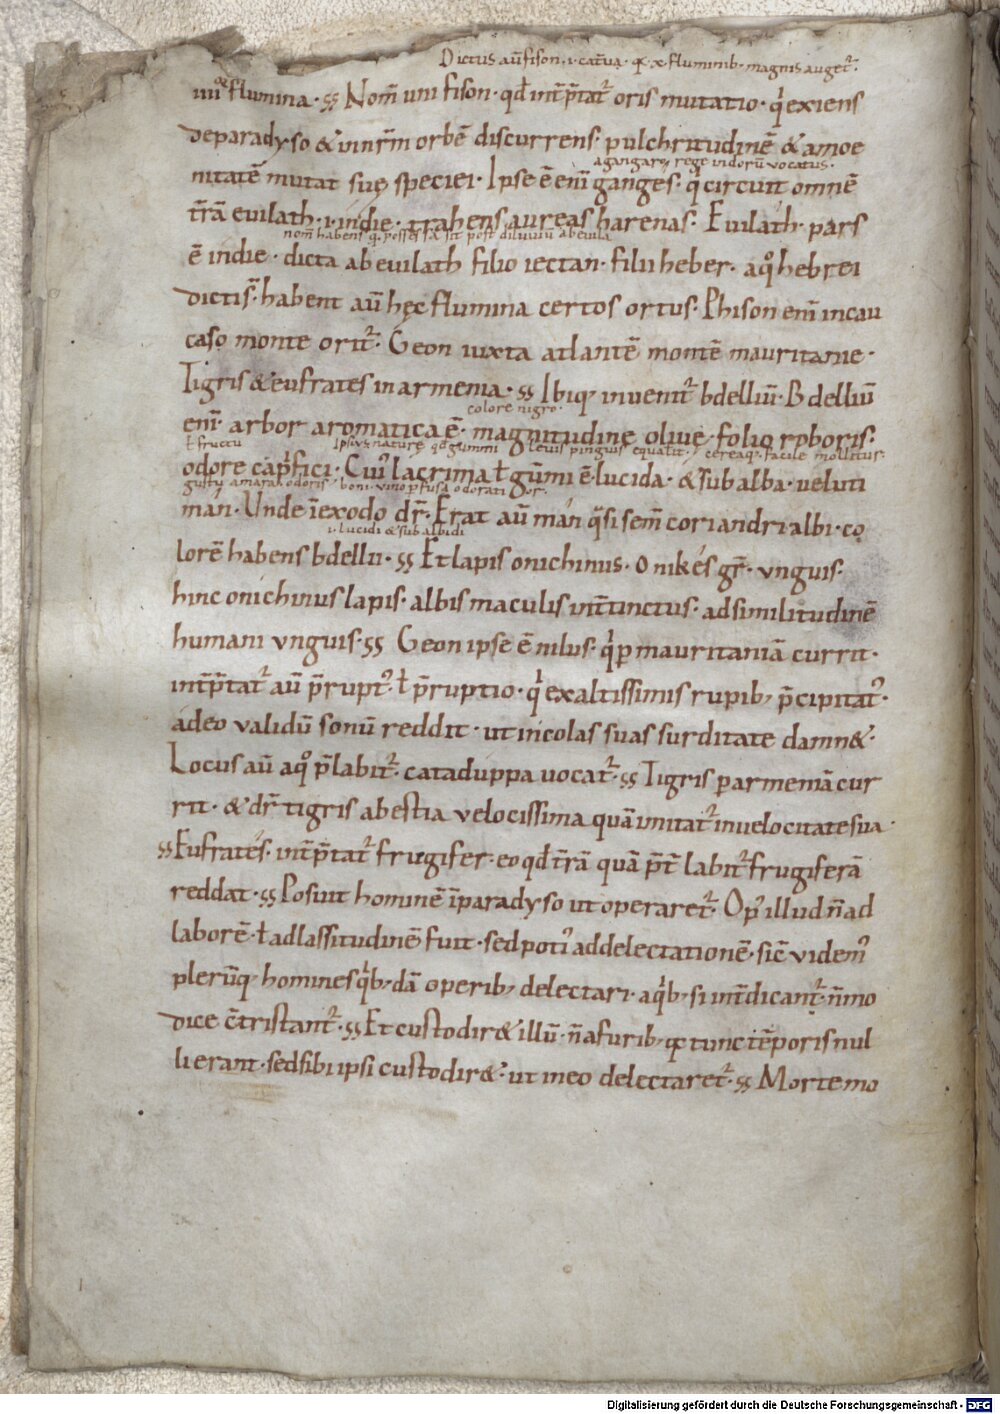 Dictus aū fison · i · cat̄ua · q · x · fluminib · magnis auget᷑ ·
iiii flumina · Nom̄ uni fison · qd̄ int̄p̄tat᷑ oris mutatio · qͥ exiens
de paradyso & innr̄m orbē discurrens · pulchritudinē & amoe
a gangaro rege indorū vocatus ·
nitatē mutat suę speciei · Ipse ē eni ganges · qͥ circuit omnē
t̄rā euilath · i · indię · trahens aureas harenas · Euilath · pars
nom̄ habens
post diluuiū ab euila
ē indię · dicta ab euilath filio iectan · filii heber · a qͦ hebrei
dicti s̄ · habent aū hęc flumina certos ortus · Phison eni in cau
caso monte orit᷑ · Geon iuxta atlantē montē mauritanię ·
Tigris & eufrates in armenia · Ibiq; inuenit᷑ bdelliū · Bdelliū
colore nigro ·
eni · arbor aromatica ē · magnitudine oliuę · folio roboris ·
ł fructu
Ipsius naturę qd̄ gummi leuis pinguis equalit᷑ · cereaq; facile mollitus ·
odore cap̄fici · Cui᷒ lacrima ł gūmi ē · lucida · & subalba · ueluti
gustu amara · odoris boni · uino p̄fusa odoratior ·
man · Unde ī exodo dr̄ · Erat aū man qͣsi sem̄ coriandri albi · co
i · lucidi & subalbidi
lorē habens bdellii · Et lapis onichinus · onikes gr̄ · vnguis ·
hinc onichinus lapis · albis maculis int̄tinctus · ad similitudinē
humani vnguis · Geon ipse ē nilus · qͥ p mauritaniā currit ·
int̄p̄tat᷑ aū p̄rupt᷒ · ł p̄ruptio · qͥ ex altissimis rupib; p̄cipitat᷒ ·
adeo validū sonū reddit · ut incolas suas surditate damn& ·
Locus aū a qͦ p̄labit᷑ · cataduppa uocat᷑ · Tigris p armeniā cur
rit · & dr̄ tigris a bestia velocissima quā imitat᷑ in uelocitate sua ·
Eufrates · int̄p̄tat᷑ frugifer · eo qd̄ t̄rā quā p̄t̄ labit᷑ frugiferā
reddat · Posuit hominē ī paradyso ut operaret᷑ · Op᷒ illud n̄ ad
laborē · ł ad lassitudinē fuit · sed poti᷒ ad delectationē · sic̄ videm᷒
plerūq; homines qͥb;dā operib; delectari · a qͥb; si int̄dicant᷑ · n̄ mo
dice c̄tristant᷑ · Et custodir& illū · n̄ a furib; q tunc tēporis nul
li erant · sed sibi ipsi custodir& · ut in eo delectaret᷑ · Morte mo
Digitalisierung gefördert durch die Deutsche Forschungsgemeinschaft - DFG